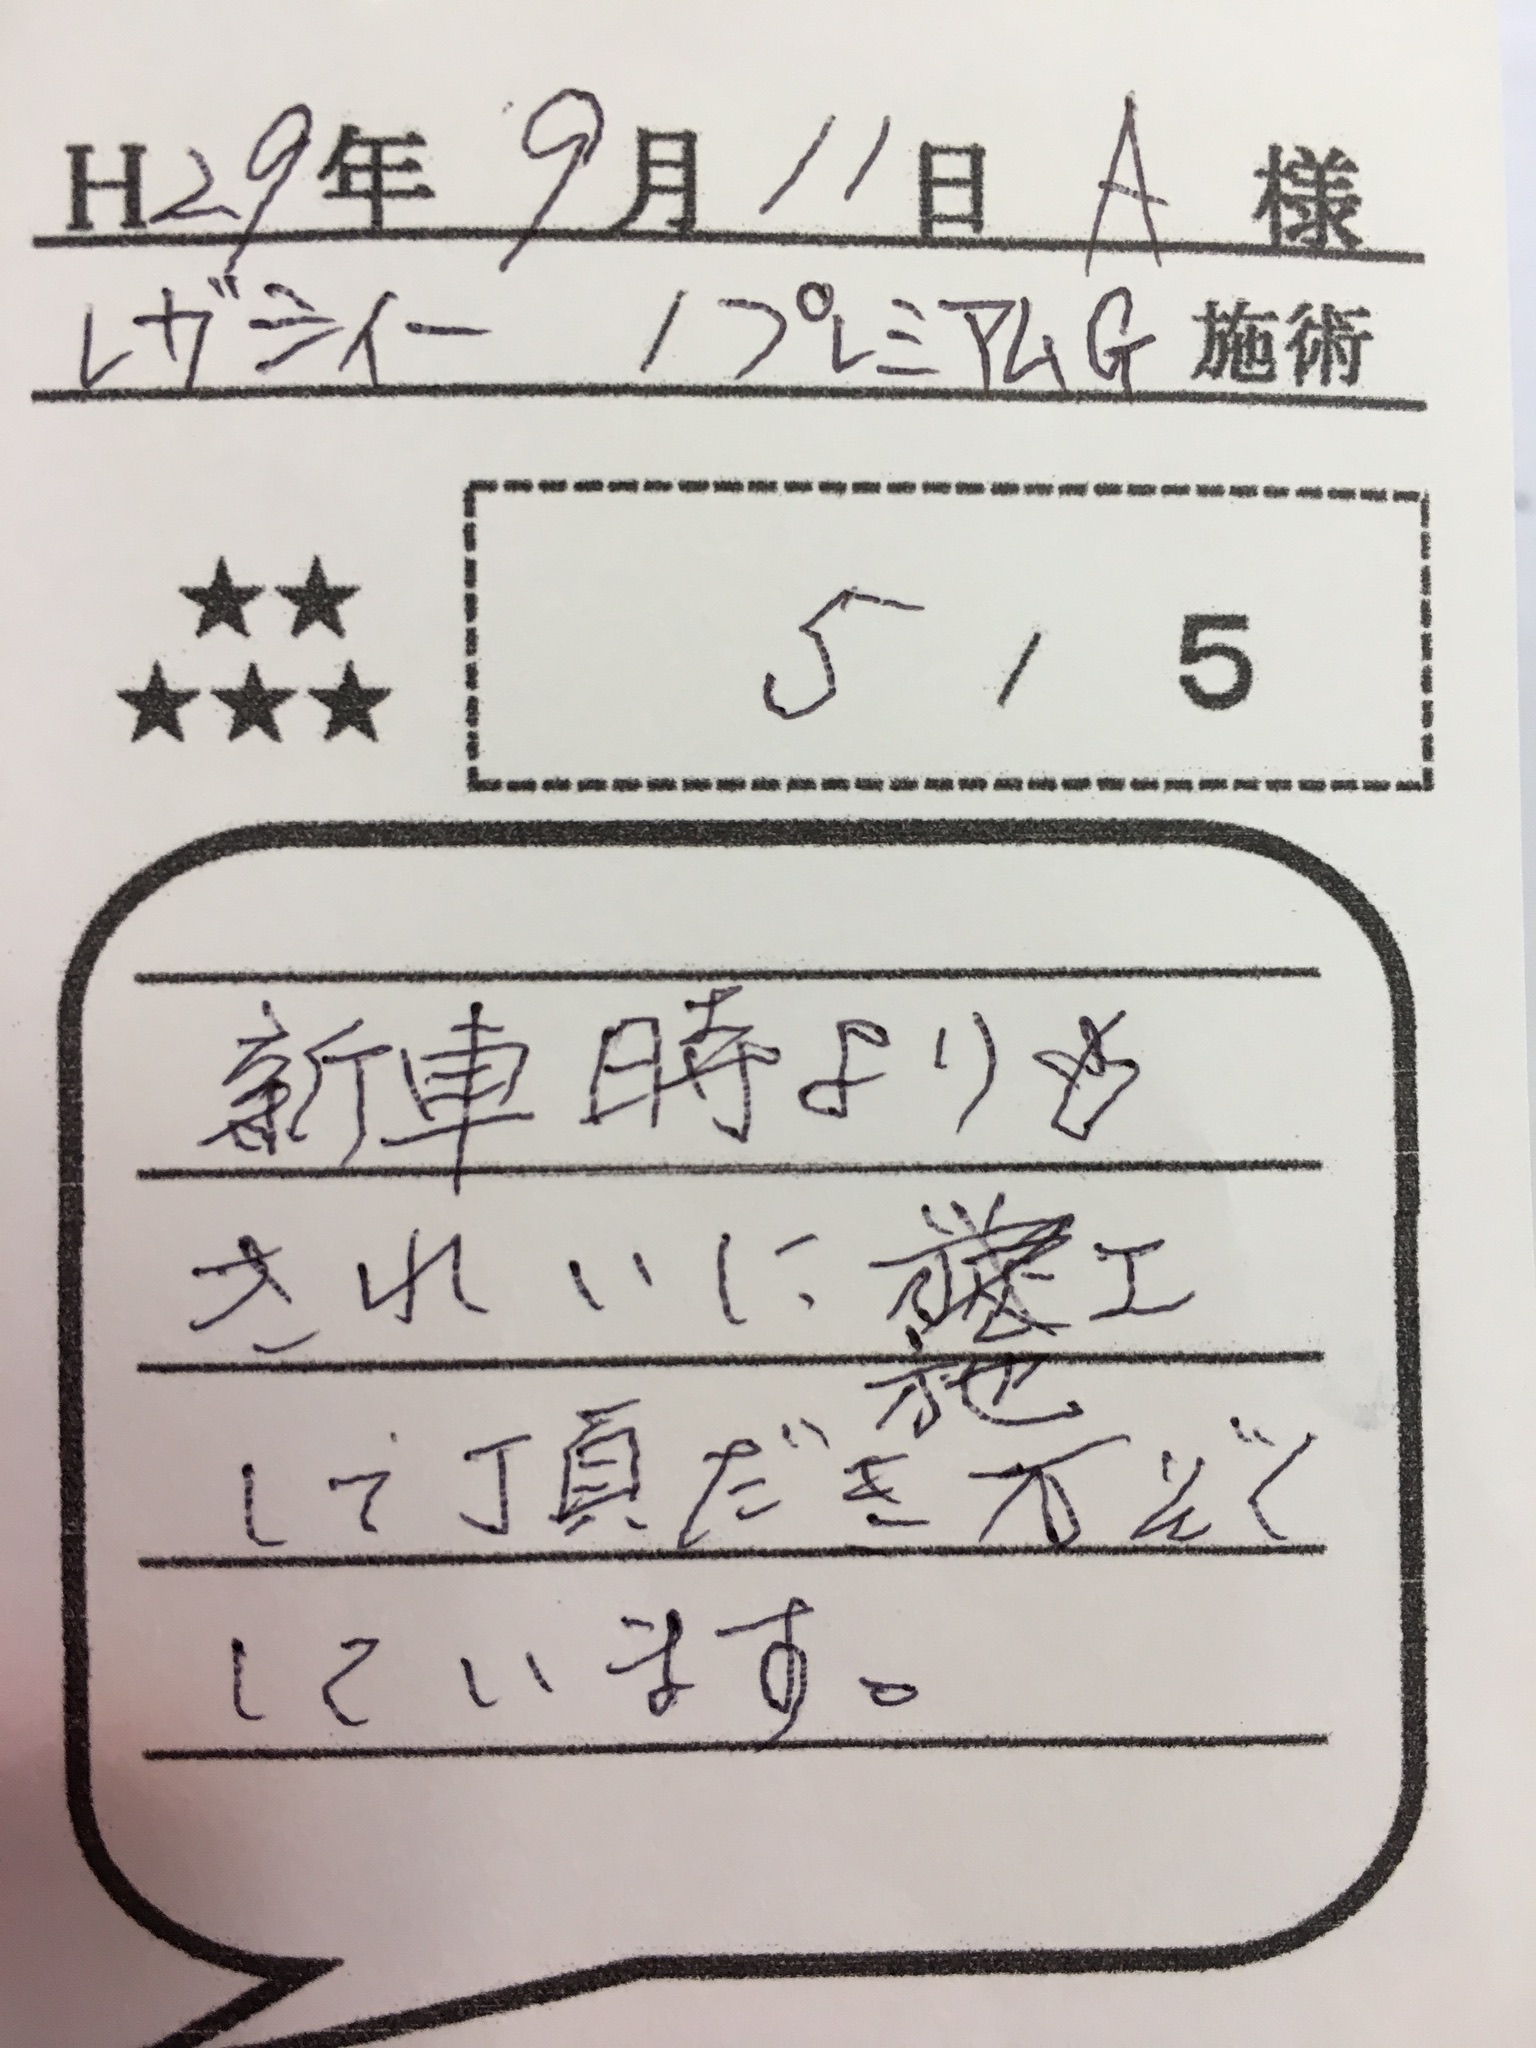 H29年 9月 11日 A 様
レガシィー / プレミアムG 施術
★★
★★★
5 / 5
新車時よりも
きれいに 工
施
して頂だき万ぞく
しています。